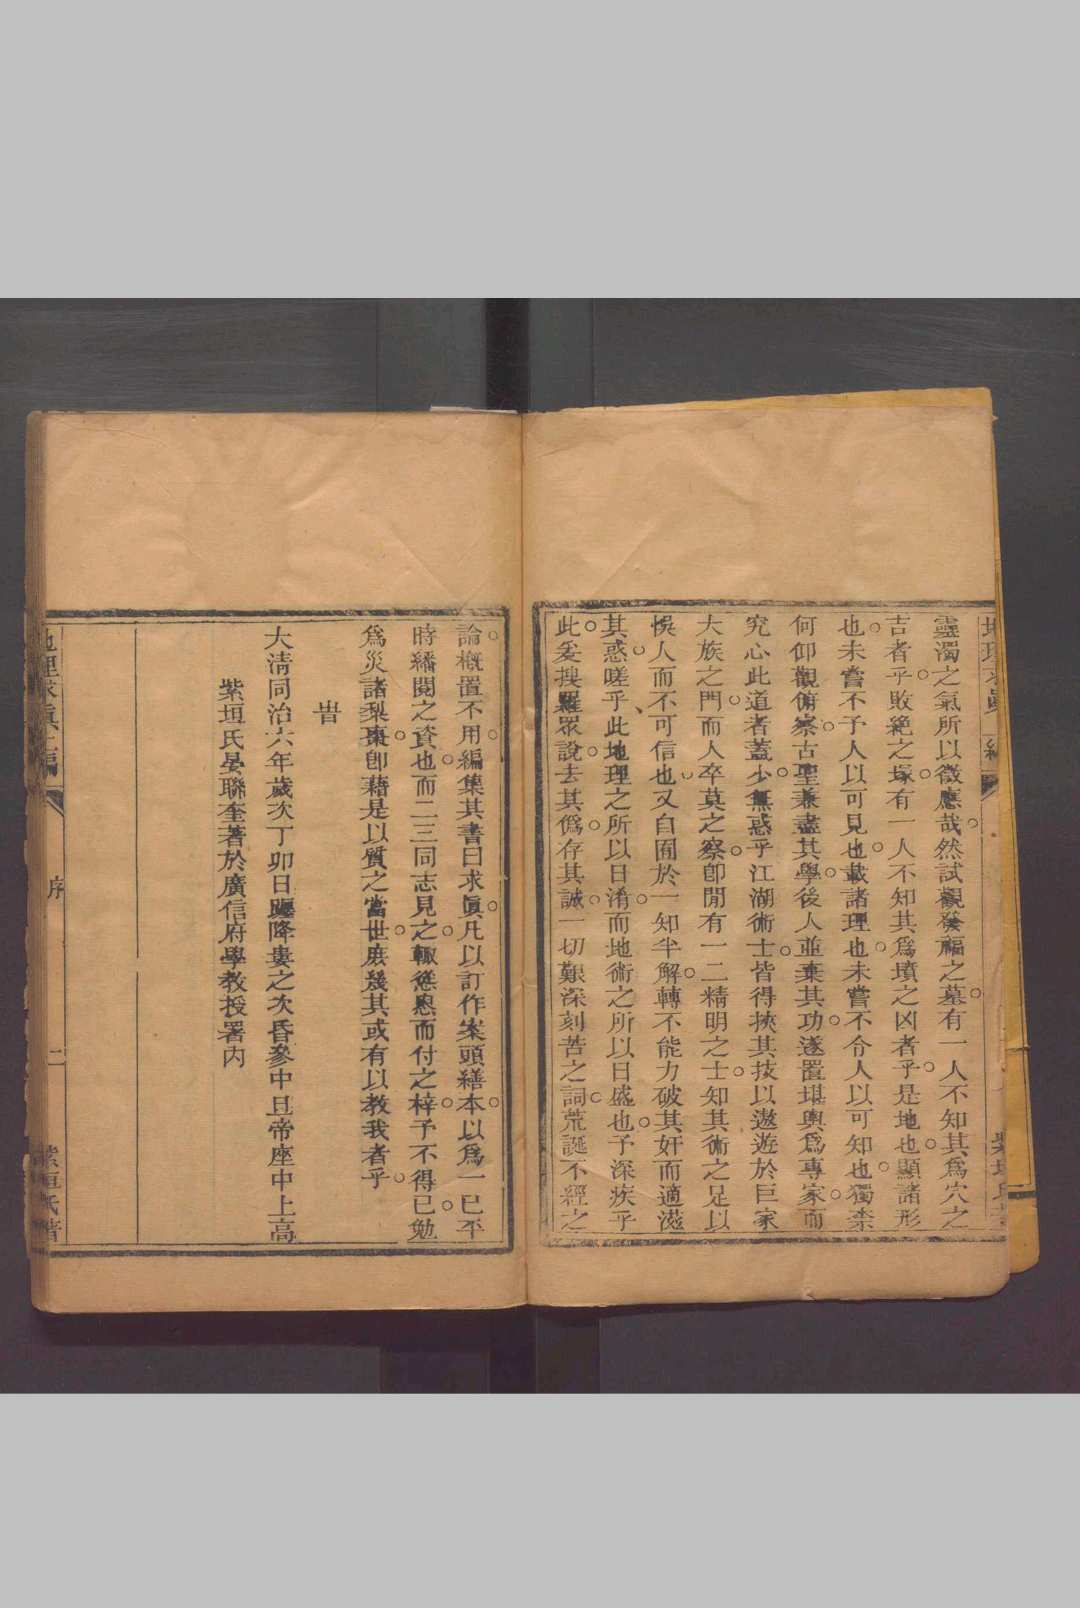 靈濁之氣所以徵應哉然試觀發福之墓有一人不知其爲穴之
吉者乎敗絶之塚有一人不知其爲墳之凶者乎是地也顯諸形
也未嘗不予人以可見也載諸理也未嘗不令人以可知也獨柰
何仰觀俯察古聖兼盡其學後人並棄其功遂置堪輿爲專家而
究心此道者蓋少無惑乎江湖術士皆得挾其技以遨遊於巨家
大族之門而人卒莫之察卽閒有一二精明之士知其術之足以
悞人而不可信也又自囿於一知半解轉不能力破其奸而適滋
其惑嗟乎此地理之所以日淆而地術之所以日盛也予深疾乎
此爰搜羅眾說去其僞存其誠一切艱深刻苦之詞荒誕不經之
論概置不用編集其書曰求眞凡以訂作案頭繕本以爲一巳平
時繙閱之資也而二三同志見之輙慫恿而付之梓予不得已勉
爲災諸梨棗卽藉是以質之當世庶幾其或有以教我者乎
旹
大清同治六年歲次丁卯日躔降婁之次昏參中旦帝座中上高
紫垣氏晏聯奎著於廣信府學教授署内
地理求眞一編
序
二
紫垣氏著